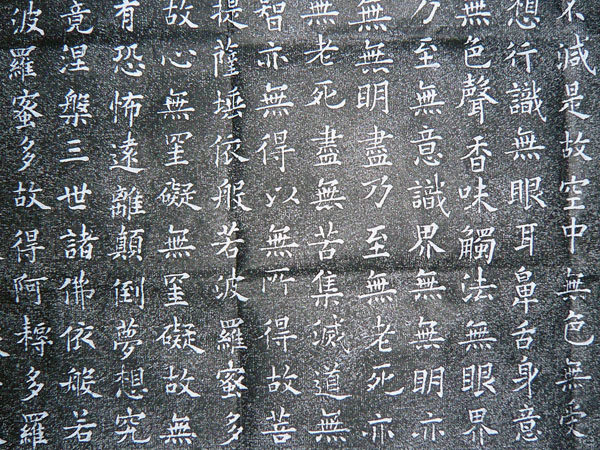 不減是故空中無色無受
想行識無眼耳鼻舌身意
無色聲香味觸法無眼界
乃至無意識界無無明亦
無無明盡乃至無老死亦
無老死盡無苦集滅道無
智亦無得以無所得故菩
提薩埵依般若波羅蜜多
故心無罣礙無罣礙故無
有恐怖遠離顛倒夢想究
竟涅槃三世諸佛依般若
波羅蜜多故得阿耨多羅